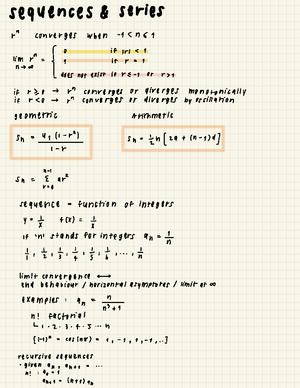 sequences & series
rⁿ converges when -1 < n ≤ 1
lim rⁿ = { 0 if |r| < 1
n → ∞ 1 if r = 1
does not exist if r ≤ -1 or r > 1
if r ≥ 0 → rⁿ converges or diverges monotonically
if r < 0 → rⁿ converges or diverges by oscillation
geometric Arithmetic
Sn = u₁ (1 - rⁿ) / 1 - r Sn = ½ n [2a + (n-1)d]
Sn = Σ arⁿ
sequence = function of integers
y = 1/x f(x) = 1/x
if 'n' stands for integers an = 1/n
1/1, 1/2, 1/3, 1/4, 1/5, 1/6, ..., 1/n
limit convergence ⟷
end behaviour / horizontal asymptotes / limit at ∞
Examples : an = n / n³ + 1
n! factorial
↳ 1 · 2 · 3 · 4 · 5 ... n
(-1)ⁿ = cos(nπ) = 1, -1, 1, -1, ..}
recursive sequences
· given a₁, an+1 = ...
n! : a₁ = 1
an+1 = (n+1) an